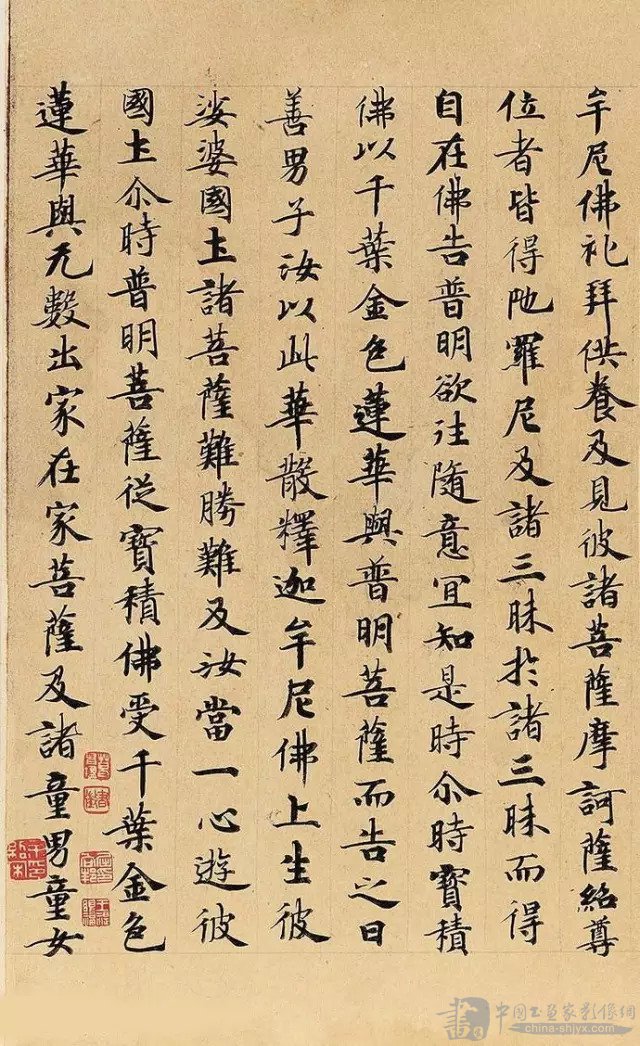 牟尼佛礼拜供養及見彼諸菩薩摩訶薩紹尊
位者皆得陁羅尼及諸三昧於諸三昧而得
自在佛告普明欲往隨意宜知是時尒時寶積
佛以千葉金色蓮華與普明菩薩而告之曰
善男子汝以此華散釋迦牟尼佛上生彼
娑婆國土諸菩薩難勝難及汝當一心遊彼
國土尒時普明菩薩從寶積佛受千葉金色
蓮華與无數出家在家菩薩及諸童男童女
書
中国书画家影像網
china-shjyx.com